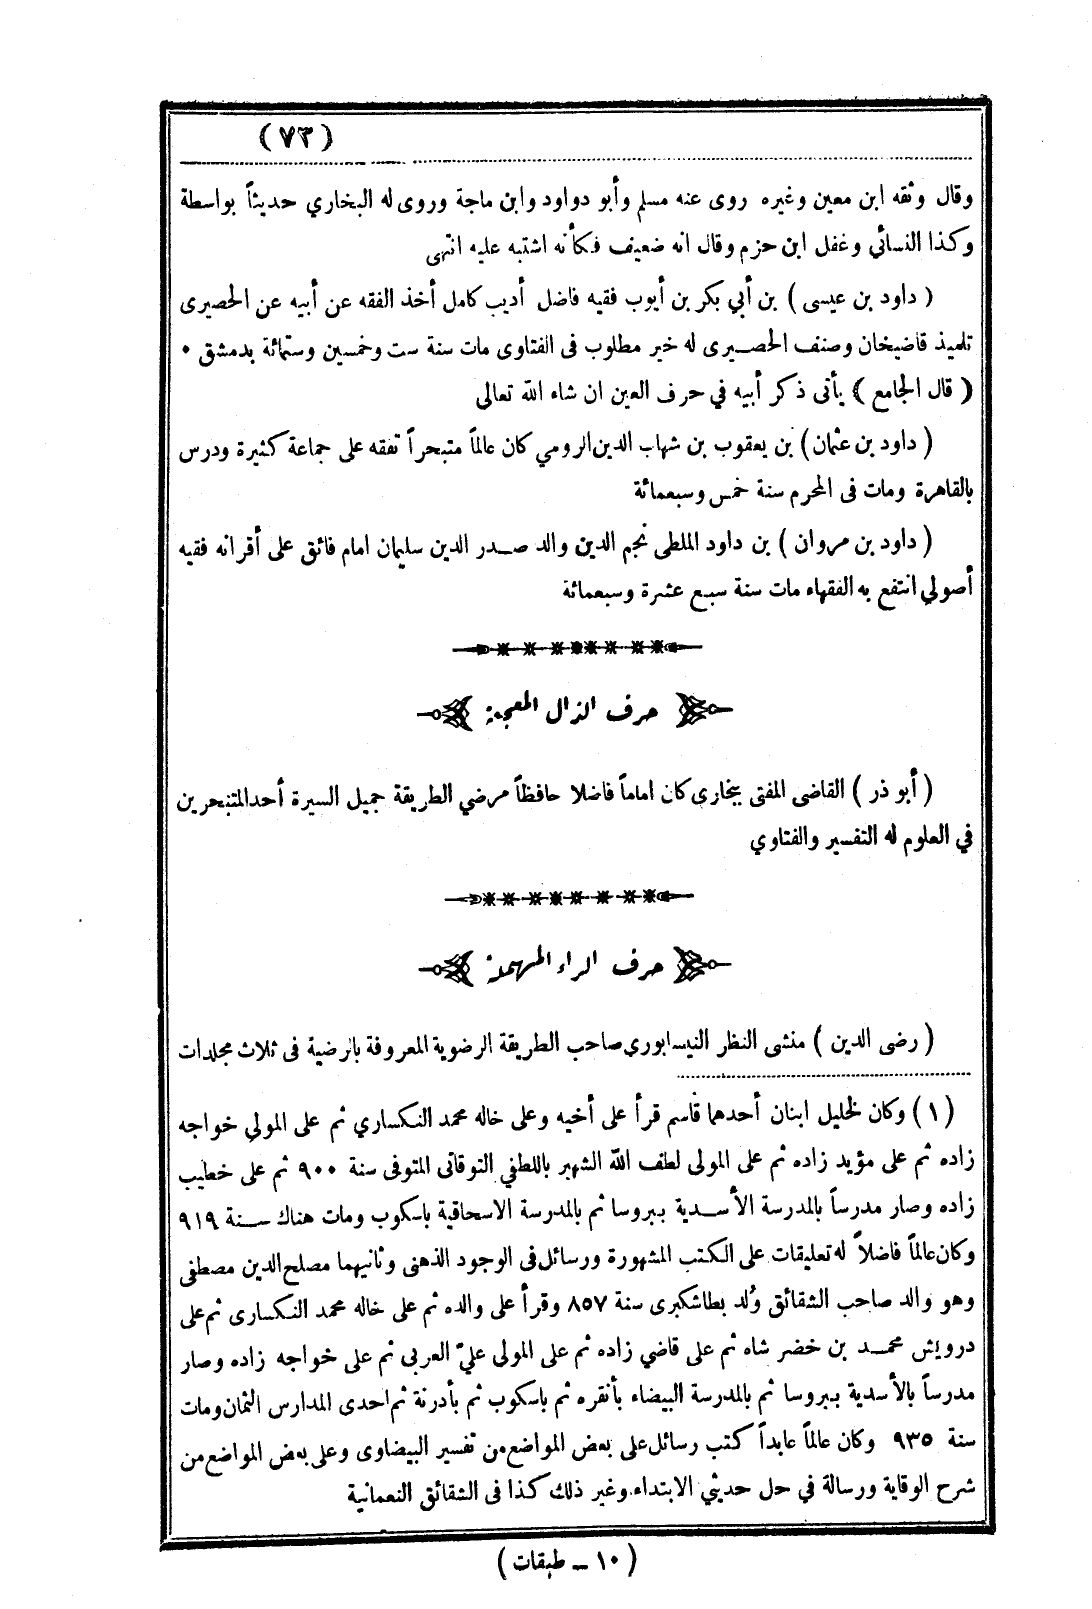 (٧٣)
وقال وثقه ابن معين وغيره روى عنه مسلم وأبو دواود وابن ماجة وروى له البخاري حديثاً بواسطة
وكذا النسائي وغفل ابن حزم وقال انه ضعيف فكأنه اشتبه عليه انتهى
( داود بن عيسى ) بن أبي بكر بن أيوب فقيه فاضل أديب كامل أخذ الفقه عن أبيه عن الحصيرى
تلميذ قاضيخان وصنف الحصيرى له خير مطلوب فى الفتاوى مات سنة ست وخمسين وستمائة بدمشق •
( قال الجامع ) يأتى ذكر أبيه في حرف العين ان شاء الله تعالى
( داود بن عثمان) بن يعقوب بن شهاب الدين الرومي كان عالماً متبحراً تفقه على جماعة كثيرة ودرس
بالقاهرة ومات فى المحرم سنة خمس وسبعمائة
( داود بن مروان ) بن داود الملطى نجم الدين والد صدر الدين سليمان امام فائق على أقرانه فقيه
أصولي انتفع به الفقهاء مات سنة سبع عشرة وسبعمائة
حرف الذال المعجمة
( أبو ذر ) القاضى المفتى ببخارى كان اماماً فاضلا حافظاً مرضي الطريقة جميل السيرة أحد المتبحرين
في العلوم له التفسير والفتاوي
حرف الراء المهملة
( رضى الدين ) منشى النظر النيسابوري صاحب الطريقة الرضوية المعروفة بالرضية فى ثلاث مجلدات
(١) وكان لخليل ابنان أحدهما قاسم قرأ على أخيه وعلى خاله محمد النكساري ثم على المولي خواجه
زاده ثم على مؤيد زاده ثم على المولى لطف الله الشهير باللطفي التوقاتى المتوفى سنة ٩٠٠ ثم على خطيب
زاده وصار مدرساً بالمدرسة الأسدية ببروسا ثم بالمدرسة الاسحاقية باسكوب ومات هناك سنة ٩١٩
وكان عالماً فاضلاً له تعليقات على الكتب المشهورة ورسائل فى الوجود الذهنى وثانيهما مصلح الدين مصطفى
وهو والد صاحب الشقائق وُلد بطاشكبرى سنة ٨٥٧ وقرأ على والده ثم على خاله محمد النكسارى ثم على
درويش محمد بن خضر شاه ثم على قاضي زاده ثم على المولى عليّ العربى ثم على خواجه زاده وصار
مدرساً بالأسدية ببروسا ثم بالمدرسة البيضاء بأنقره ثم باسكوب ثم بأدرنة ثم احدى المدارس الثمان ومات
سنة ٩٣٥ وكان عالماً عابداً كتب رسائل على بعض المواضع من تفسير البيضاوى وعلى بعض المواضع من
شرح الوقاية ورسالة في حل حديثي الابتداء وغير ذلك كذا فى الشقائق النعمانية
( ١٠ – طبقات )